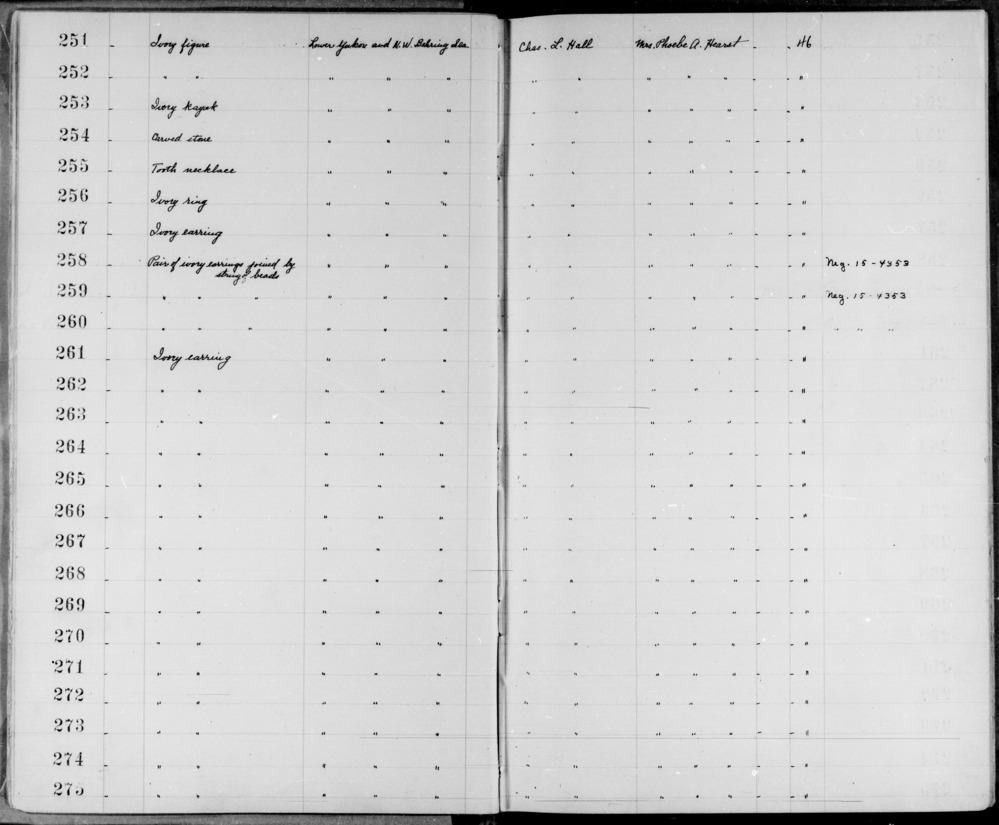 251 - Ivory figure Lower Yukon and N.W. Behring Sea Chas. L. Hall Mrs. Phoebe A. Hearst - - H6
252 - " " " " " " " " " " - - "
253 - Ivory kayak " " " " " " " " - - "
254 - Carved stone " " " " " " " " - - "
255 - Tooth necklace " " " " " " " " - - "
256 - Ivory ring " " " " " " " " - - "
257 - Ivory earring " " " " " " " " - - "
258 - Pair of ivory earrings joined by " " " " " " " " - - " Neg. 15-4353
string of beads
259 - " " " " " " " " " " " " - - " Neg. 15-4353
260 - " " " " " " " " " " " - - " " " "
261 - Ivory earring " " " " " " " " - - "
262 - " " " " " " " " " " - - "
263 - " " " " " " " " " " - - "
264 - " " " " " " " " " " - - "
265 - " " " " " " " " " " - - "
266 - " " " " " " " " " " - - "
267 - " " " " " " " " " " - - "
268 - " " " " " " " " " " - - "
269 - " " " " " " " " " " - - "
270 - " " " " " " " " " " - - "
271 - " " " " " " " " " " - - "
272 - " " " " " " " " " " - - "
273 - " " " " " " " " " " - - "
274 - " " " " " " " " " " - - "
275 - " " " " " " " " " " - - "